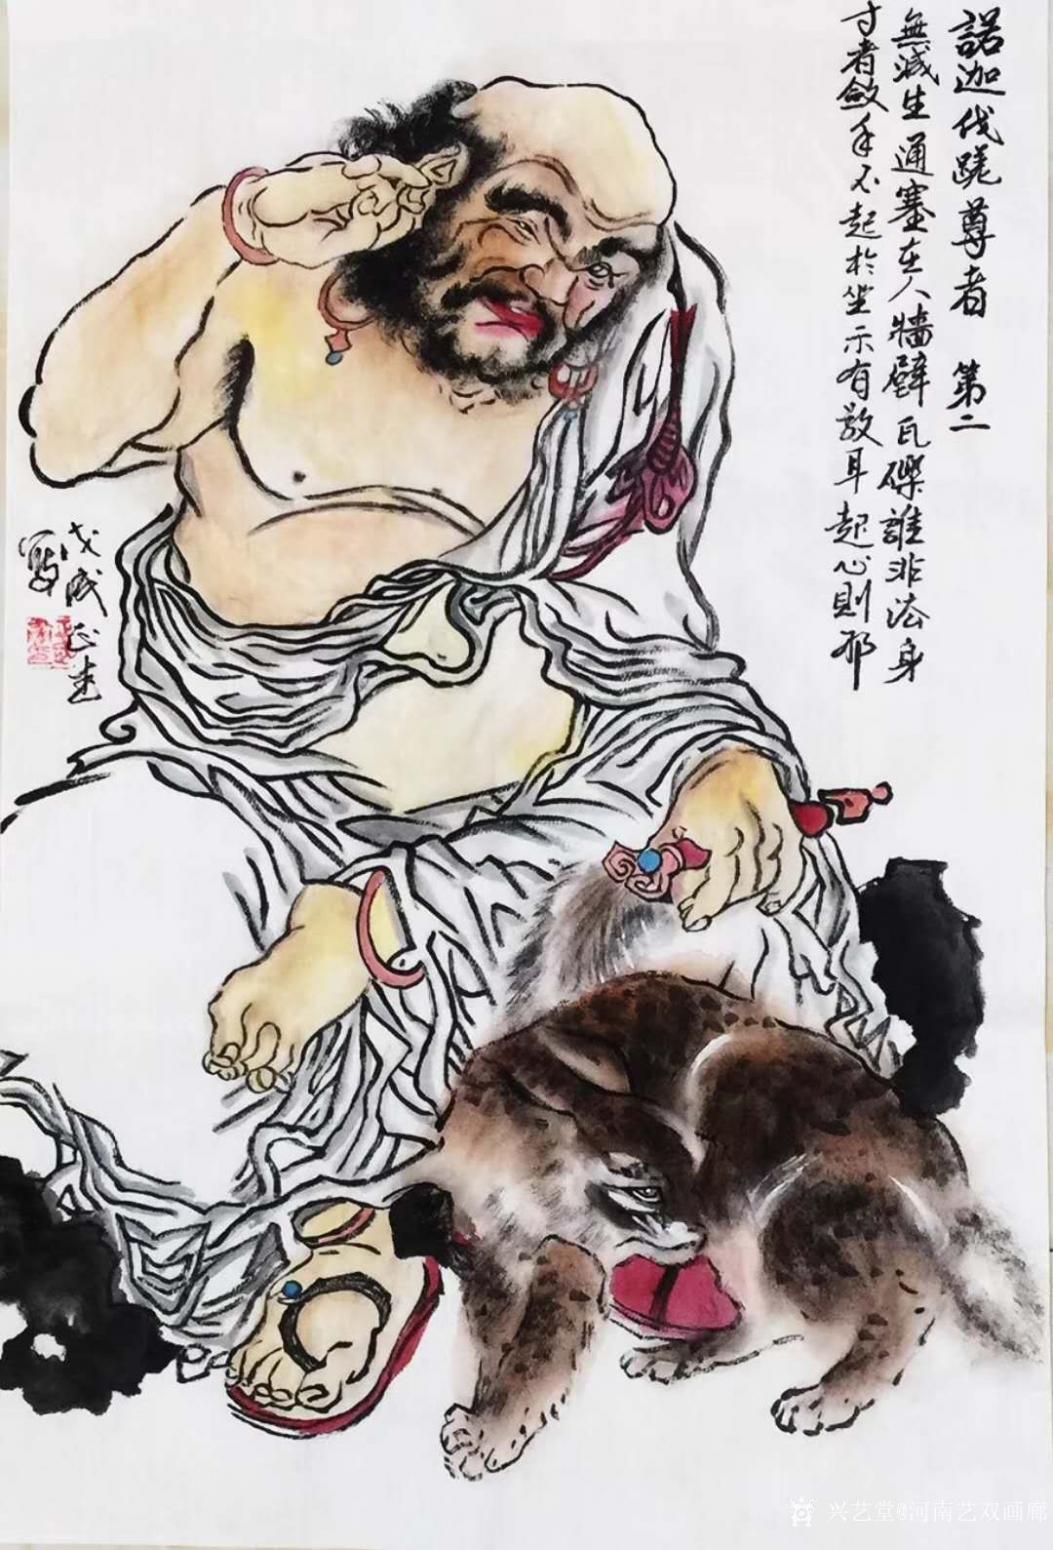 諾迦伐蹉尊者 第二
無滅無生通塞在人牆壁瓦礫誰非法身
寸者斂手不起於坐示有敬耳起心則邪
戈成正書
寫
兴艺堂@河南艺双画廊